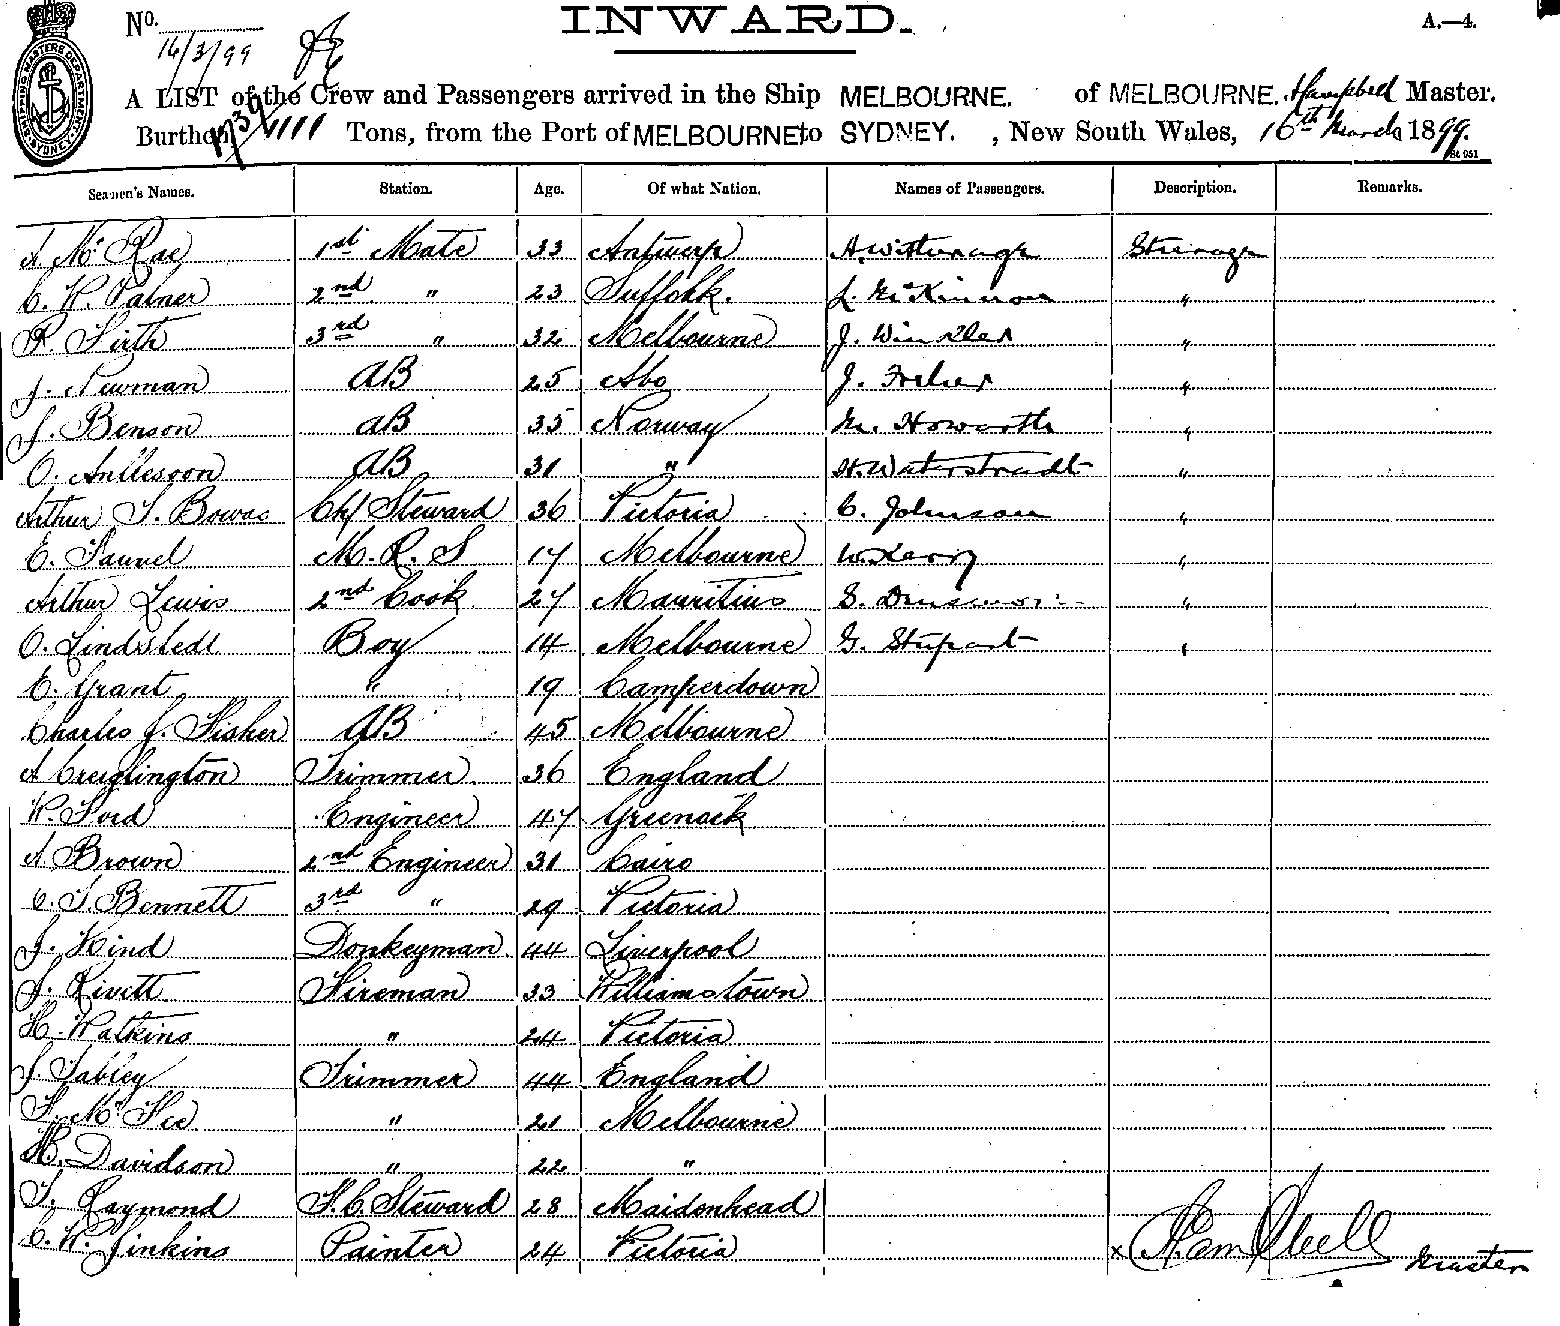 INWARD.
No.
A.—4.
16/3/99
A LIST of the Crew and Passengers arrived in the Ship MELBOURNE. of MELBOURNE. Campbell Master.
Burthen 1737/1111 Tons, from the Port of MELBOURNE to SYDNEY. , New South Wales, 16th March 1899.
St 951
SHIPPING MASTERS DEPARTMENT SYDNEY
Seamen's Names. Station. Age. Of what Nation. Names of Passengers. Description. Remarks.
A McRae 1st Mate 33 Antwerp A. Steerage
C. W. Palmer 2nd " 23 Suffolk. L. McKinnon "
R. Firth 3rd " 32 Melbourne J. Winkler "
J. Newman AB 25 Abo J. "
J. Benson AB 35 Norway M. Howorth "
O. AB 31 " H. Waterstradt "
Arthur S. Bowas Chf Steward 36 Victoria C. Johnson "
E. M. R. S 17 Melbourne W. Kerry "
Arthur Lewis 2nd Cook 27 Mauritius S. "
O. Lindstedt Boy 14 Melbourne G. Stupart "
E. Grant " 19 Camperdown
Charles J. Fisher AB 45 Melbourne
A Creighington Trimmer 36 England
W. Ford Engineer 47 Greenock
A Brown 2nd Engineer 31 Cairo
C. S. Bennett 3rd " 29 Victoria
J. Hind Donkeyman 44 Liverpool
J. Rivett Fireman 33 Williamstown
H. Watkins " 24 Victoria
J. Tabley Trimmer 44 England
F. McFee " 21 Melbourne
H. Davidson " 22 "
T. Raymond F.C. Steward 28 Maidenhead
C. W. Jinkins Painter 24 Victoria
x Campbell Master